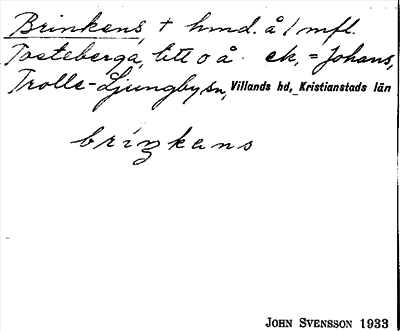 Brinkens, + hmd. å 1 mfl.
Tosteberga, litt o å. ek, = Johans,
Trolle-Ljungby sn, Villands hd, Kristianstads län
briŋkens
JOHN SVENSSON 1933